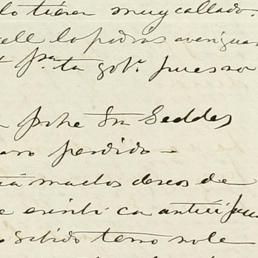 lo tienen muy callado.
ell lo podrás averiguar
pᵃ. ta gobᵃ. pues no
pobre Sr Geddes
perdido —
tá muchos deseos de
e escribi ca antici
sabido temo no le